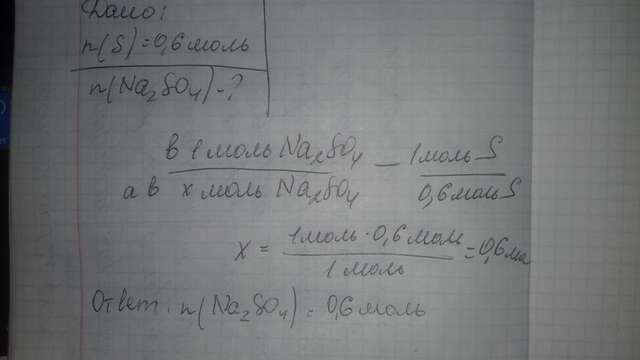 Дано:
n(S)=0,6 моль
n(Na₂SO₄)-?
в 1 моль Na₂SO₄ — 1 моль S
а в x моль Na₂SO₄ 0,6 моль S
X = 1 моль · 0,6 моль = 0,6 мо
1 моль
Ответ. n(Na₂SO₄) = 0,6 моль